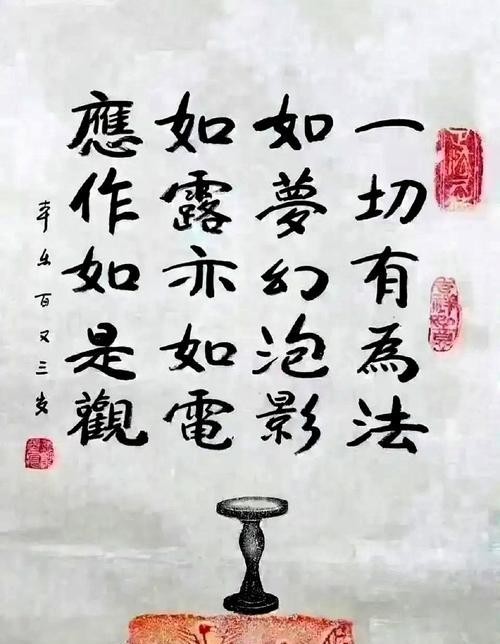 一切有為法
如夢幻泡影
如露亦如電
應作如是觀
百又三岁